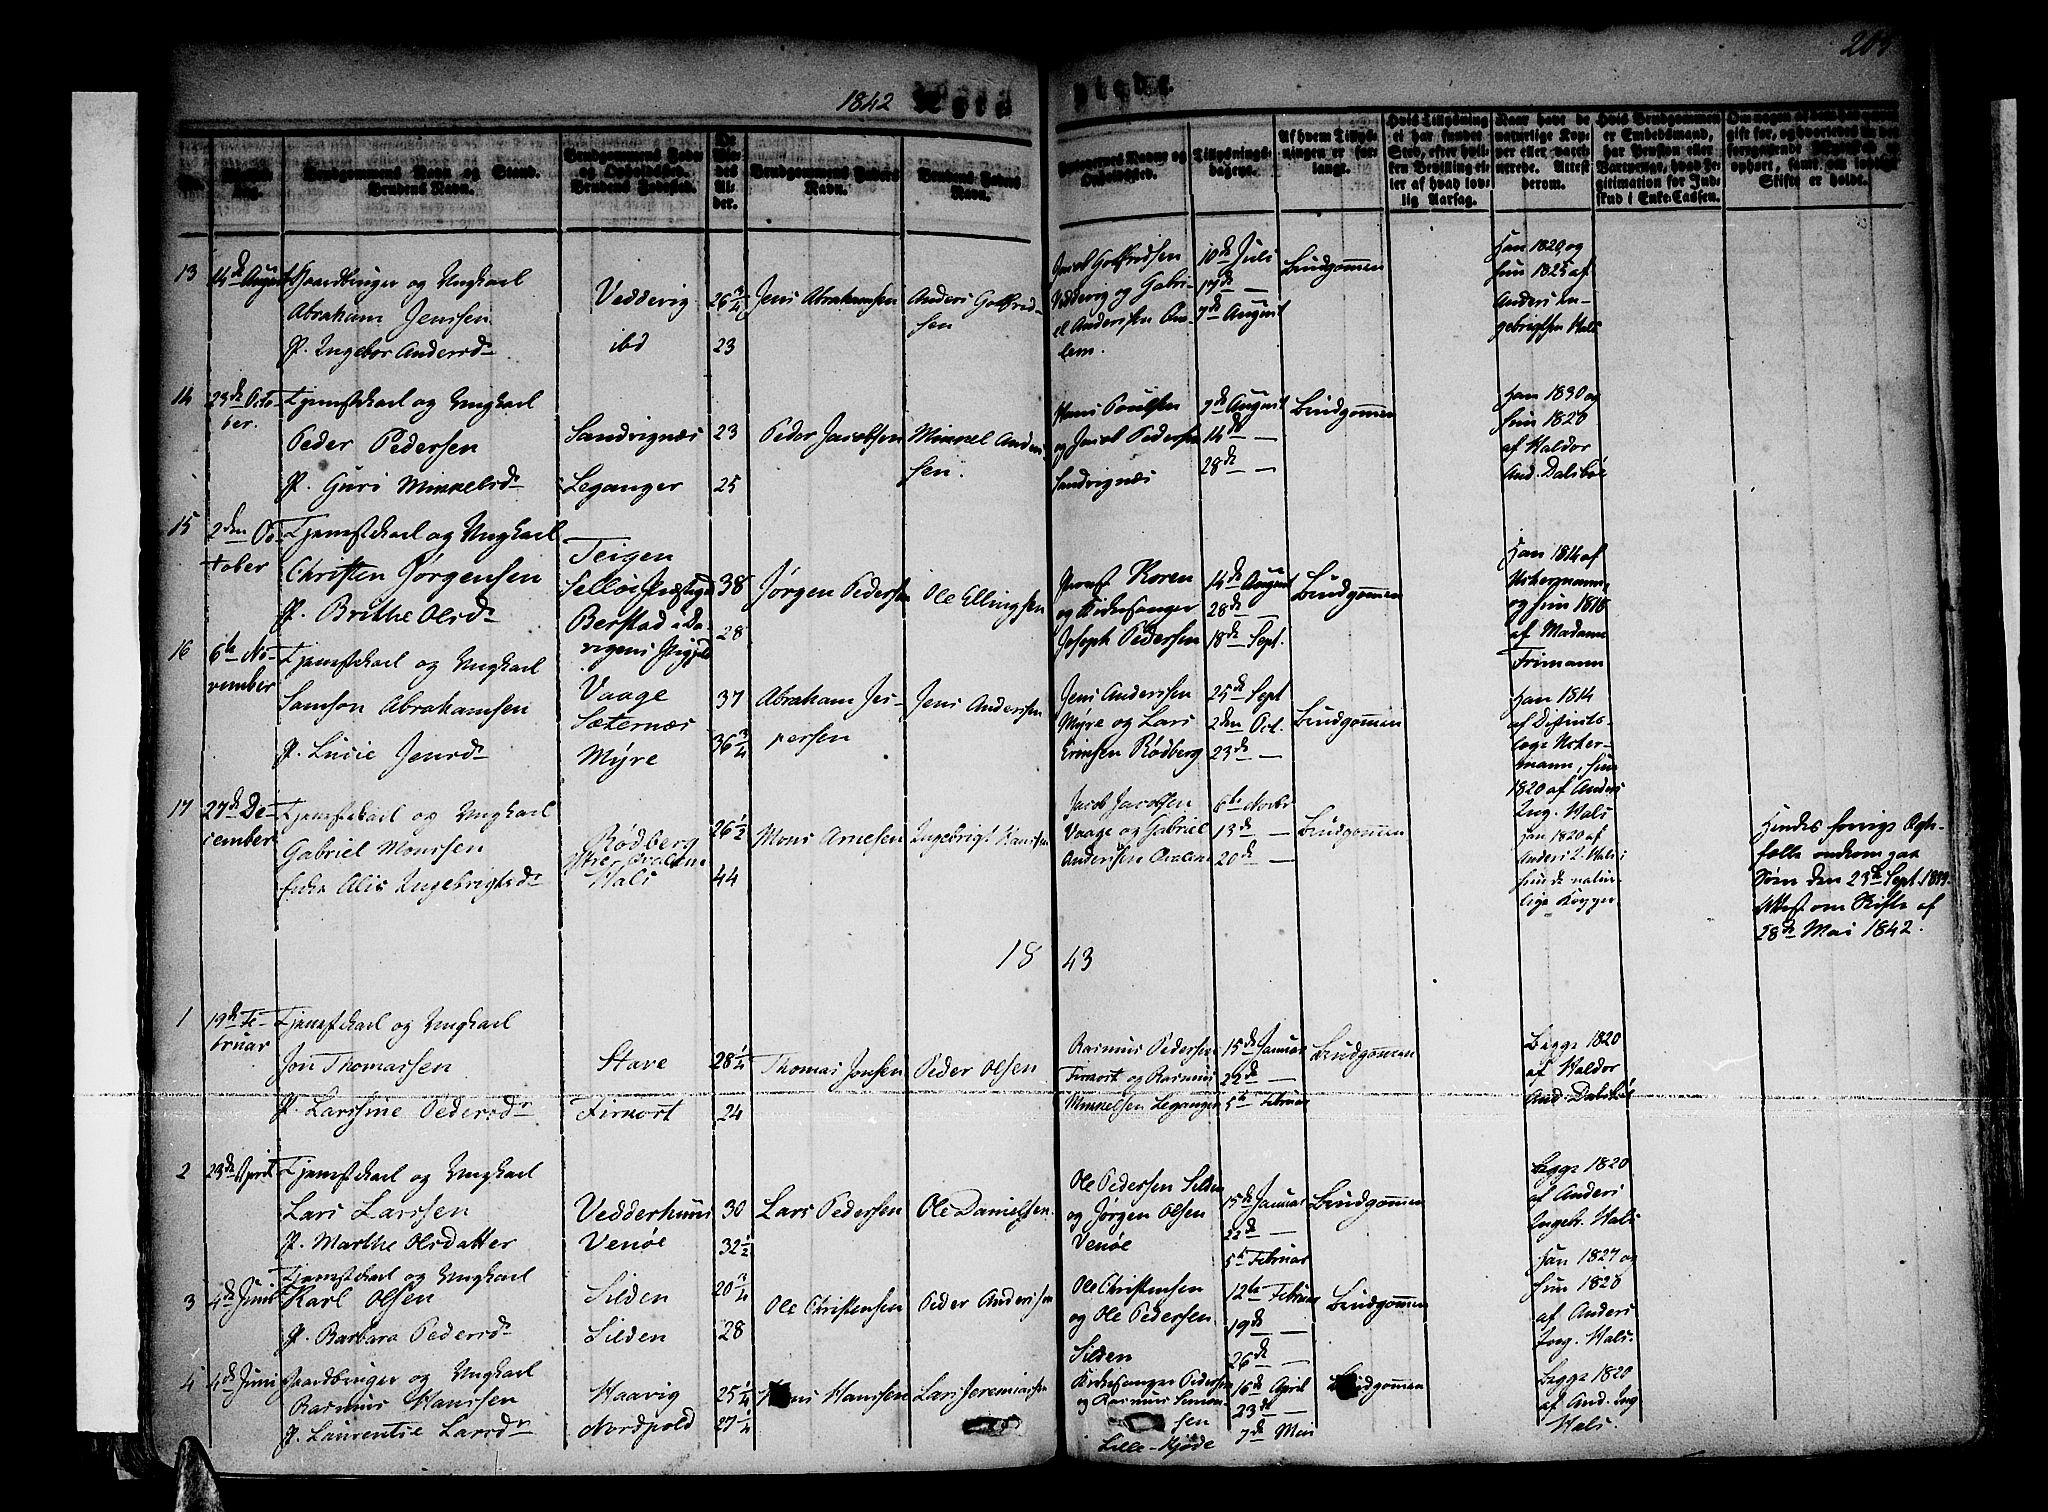 1842
Copulerede.
No.
Brudgommens Navn og Stand.
Brudens Navn.
Brudgommens Fødested
og Opholdssted.
Brudens Fødested.
De
Vie-
des
Al-
der.
Brudgommens Faders
Navn.
Brudens Faders
Navn.
Forlovernes Navne og
Opholdssted.
Tillysnings-
dagene.
Af hvem Tillys-
ningen er for-
langt.
Hvis Tillysning
ei har fundet
Sted, efter hvil-
ken Bevilling el-
ler af hvad lov-
lig Aarsag.
Naar have de
naturlige Kop-
per eller vacci-
nerede. Attest
derom.
Hvis Brudgommen
er Embedsmand,
har Pension eller
Vartpenge, hvad Le-
gitimation for Ind-
skud i Enke-Cassen.
Om nogen af dem har været
gift før, og hvorledes
foregaaende Ægteskab er
ophørt, samt om lovligt
Skifte er holdt.
13
14de August
Gaardbruger og Ungkarl
Abraham Jenssen
P. Ingebor Andersdr
Veddevig
ibd
26 3/4
23
Jens Abrahamsen
Anders Gotfred-
sen
Jacob Gotfredsen
Veddevig og Gabri-
el Andersen Oa-
lem.
10de Juli
17de —
7de August
Brudgommen
Han 1820 og
Hun 1825 af
Anders In-
gebrigtsen Hals
14
23de Octo-
ber.
Tjenestekarl og Ungkarl
Peder Pedersen
P. Guri Mikkelsdr
Sandvignæs
Leganger
23
25
Peder Jacobsen
Mikkel Ander-
sen.
Hans Poulsen
og Jacob Pedersen
Sandvignæs
7de August
14de —
28de —
Brudgommen
Han 1830 og
Hun 1820
af Haldor
And. Dalsbøe
15
2den Oc-
tober
Tjenestekarl og Ungkarl
Christen Jørgensen
P. Brithe Olsdr
Teigen
Selløe Præstegj.
Berstad i Da-
vigens Prgjeld
38
28
Jørgen Pedersen
Ole Ellingsen
Provst Koren
og Kirkesanger
Joseph Pedersen
14de August
28de —
18de Sept.
Brudgommen
Han 1814 af
Uchermann
og Hun 1818
af Madam
Frimann
16
6te No-
vember
Tjenestekarl og Ungkarl
Samson Abrahamsen
P. Lucie Jensdr
Vaage
Sæternæs
Myre
37
36 3/4
Abraham Jes-
persen
Jens Andersen
Jens Andersen
Myre og Lars
Ericksen Rødberg
25de Sept
2den Oct.
23de —
Brudgommen
Han 1814
af Districts-
læge Ucher-
mann, hun
1820 af Anders
Ing. Hals
17
27de De-
cember
Tjenestekarl og Ungkarl
Gabriel Monssen
Enke Alis Ingebrigtsdr
Rødberg
Ytter Oralem
Hals
26 1/2
44
Mons Arnesen
Ingebrigt Hanssen
Jacob Jacobsen
Vaage og Gabriel
Andersen Oralem
6te Novbr
13de —
20de —
Brudgommen
Han 1820 af
Anders I. Hals
Hun de natur-
lige Kopper
Hendes forrige Ægte-
fælle omkom paa
Søen den 23de Sept. 1839.
Attest om Skifte af
28de Mai 1842.
1843
1
19de Fe-
bruar
Tjenestekarl og Ungkarl
Jon Thomassen
P. Larssine Pedersdr
Stave
Firvort
28 1/4
24
Thomas Jonsen
Peder Olsen
Rasmus Pedersen
Firvort og Rasmus
Mikkelsen Leganger
15de Januar
22de —
5te Februar
Brudgommen
Begge 1820
af Haldor
And. Dalsbøe
2
23de April
Tjenestekarl og Ungkarl
Lars Larssen
P. Marthe Olsdatter
Vedderhuus
Venøe
30
32 1/2
Lars Pedersen
Ole Danielsen
Ole Pedersen Silden
og Jørgen Olsen
Venøe
15de Januar
22de
5te Februar
Brudgommen
Begge 1820
af Anders
Ingebr. Hals
3
4de Juni
Tjenestekarl og Ungkarl
Karl Olsen
P. Barbara Pedersdr
Silden
Silden
20 3/4
28
Ole Christensen
Peder Andersen
Ole Christensen
og Ole Pedersen
Silden
12te Februar
19de —
26de —
Brudgommen
Han 1827 og
Hun 1828
af Anders
Ing. Hals.
4
4de Juni
Gaardbruger og Ungkarl
Rasmus Hanssen
P. Laurentse Larsdr
Haavig
Nordpold
25 1/4
27 1/4
Hans Hanssen
Lars Jeremiassen
Kirkesanger Pedersen
og Rasmus Simon-
sen
Lille-Kjøde
16de April
23de —
7de Mai
Brudgommen
Begge 1820
af And. Ing
Hals